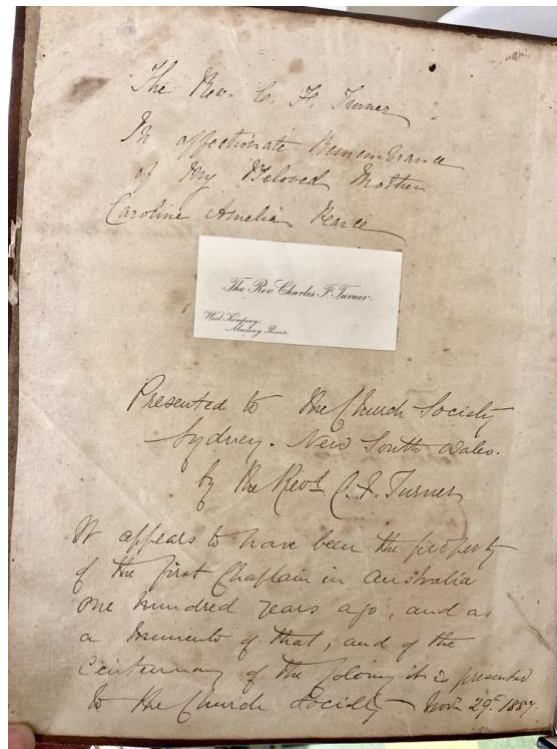 The Rev. C. F. Turner
In affectionate Remembrance
of My Beloved Mother
Caroline Amelia Pearce
The Rev. Charles F. Turner.
West Kempsey,
Macleay River.
Presented to the Church Society
Sydney. New South Wales.
by the Revd. C. F. Turner
It appears to have been the property
of the first Chaplain in Australia
One hundred years ago, and as
a memento of that, and of the
Centenary of the Colony it is presented
to the Church Society Novr. 29th 1887.